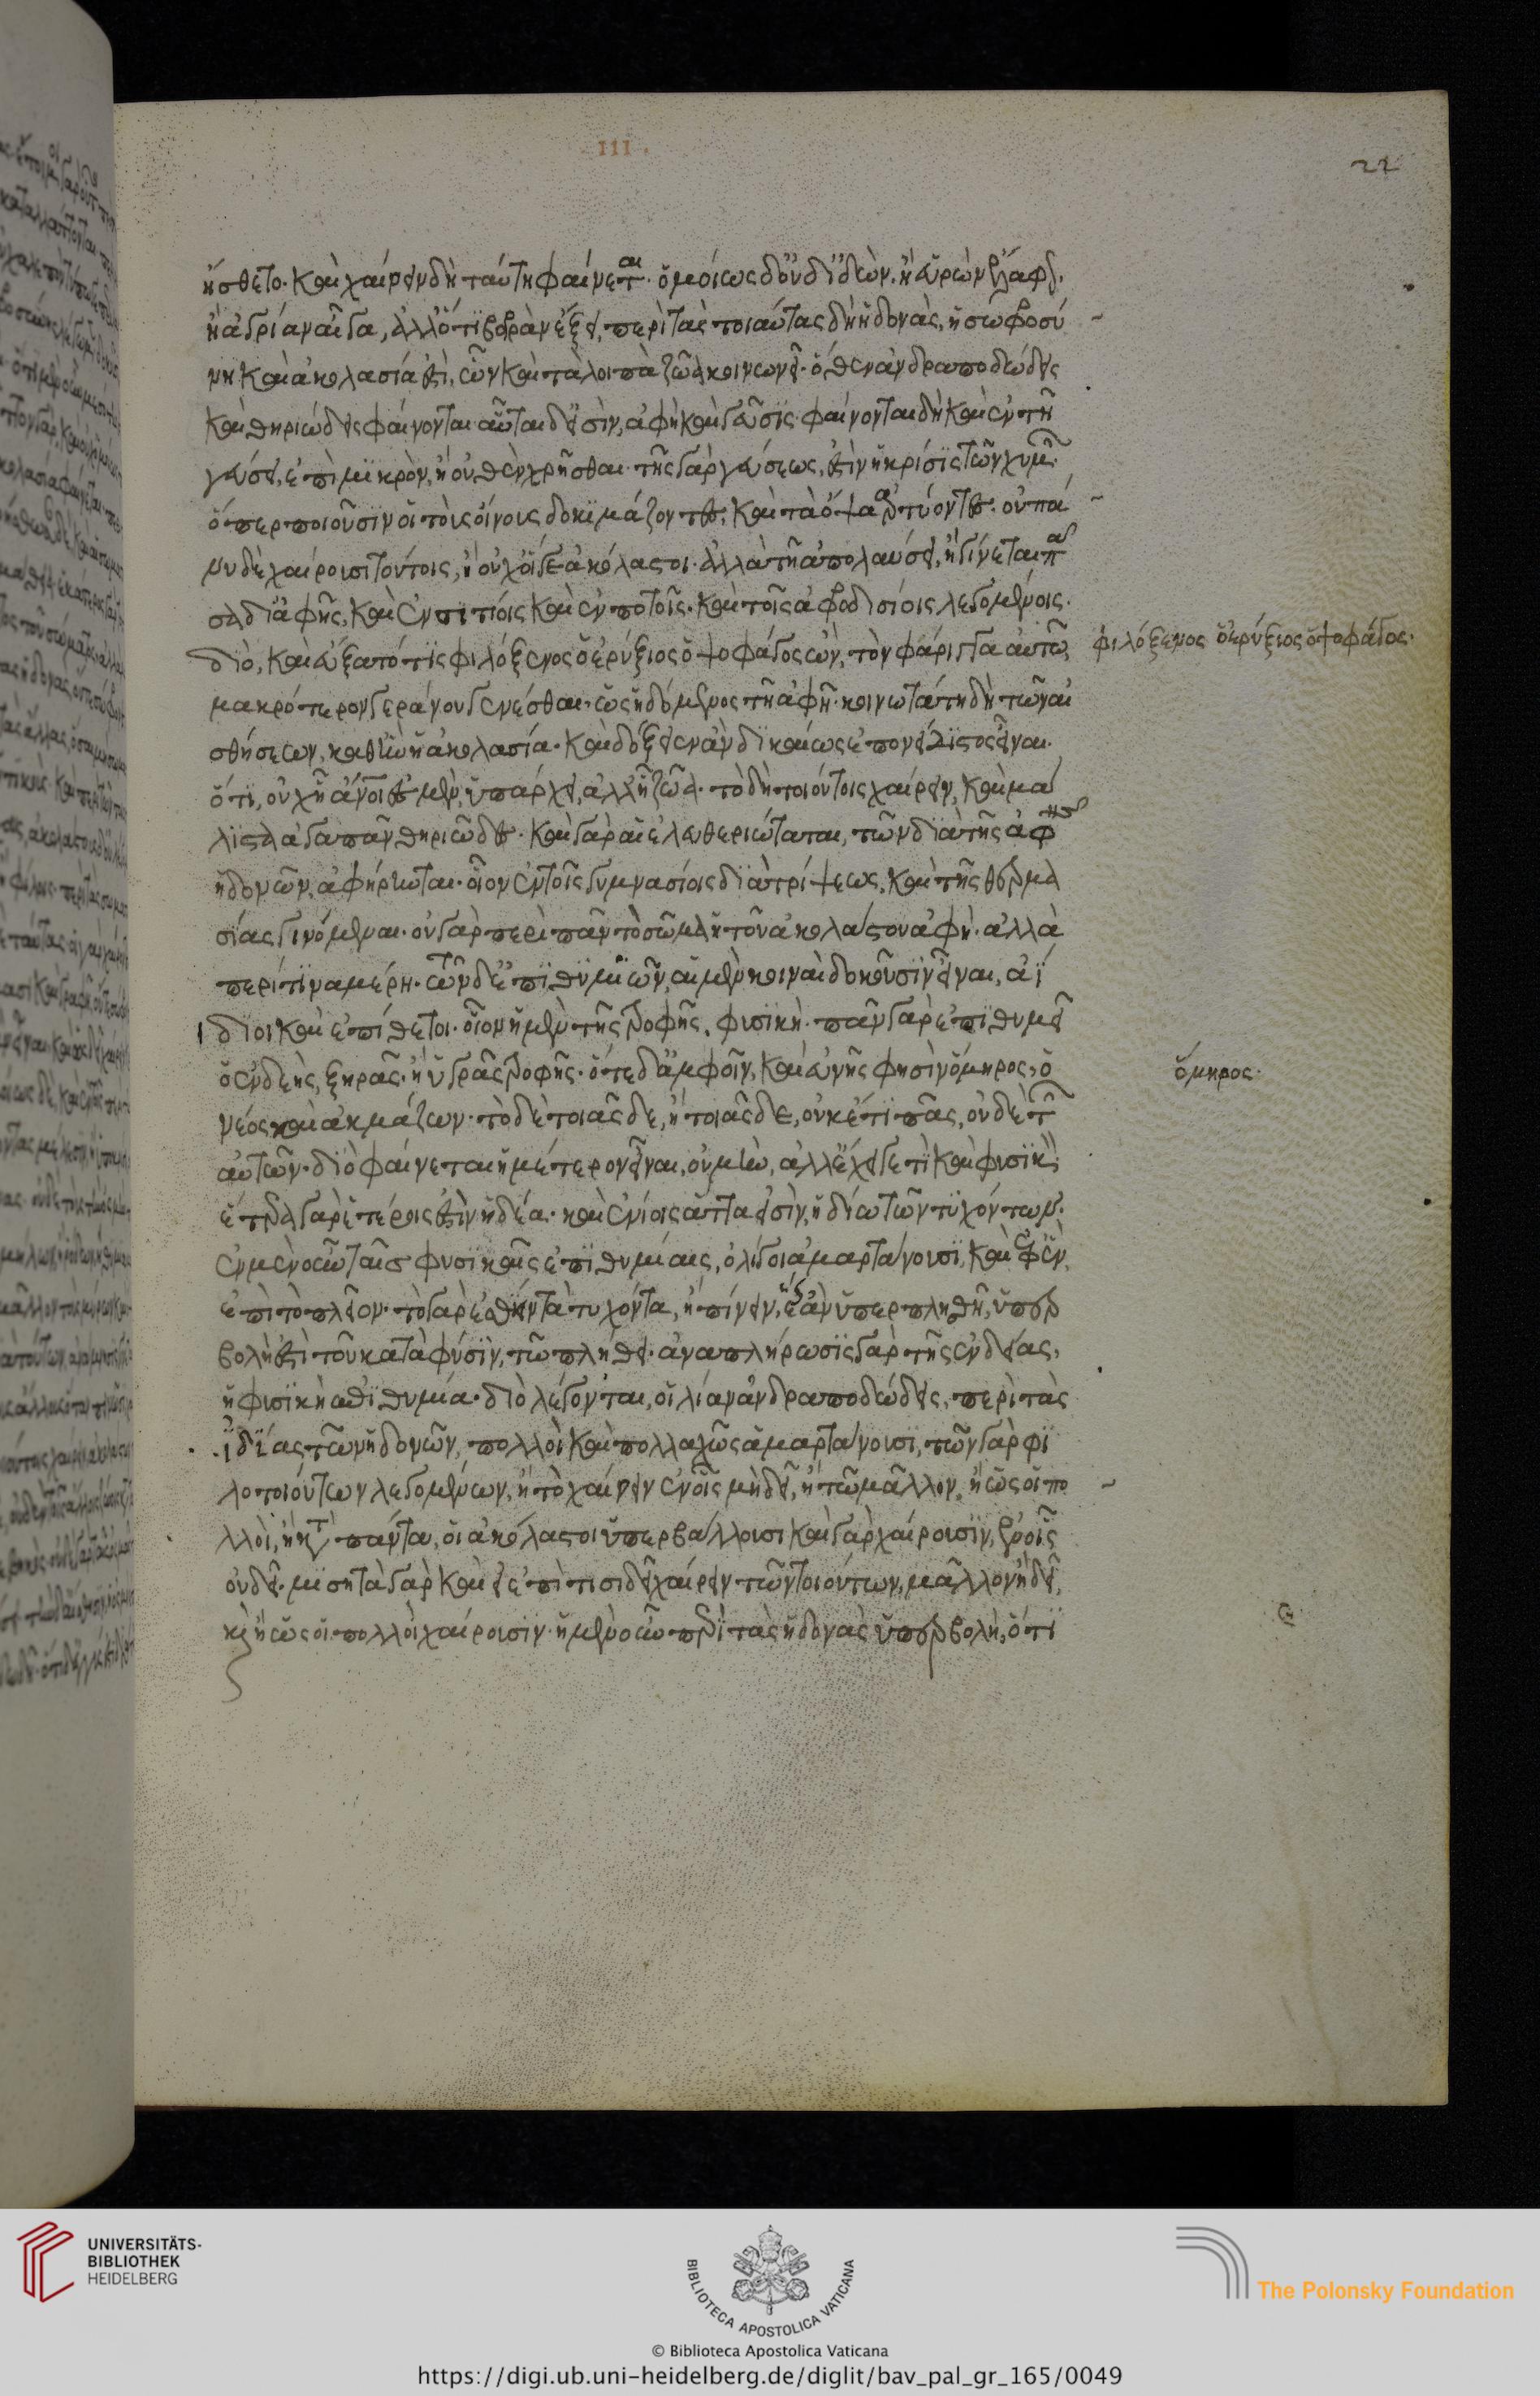 III
22
ἤσθετο. καὶ χαίρειν δὴ ταύτη φαίνεται. ὁμοίως δ' οὐδ' ἰδὼν. ἢ εὑρὼν ἔλαφον.
ἢ ἄγριαν αἶγα, ἀλλ' ὅτι βορὰν ἕξει, περὶ τὰς τοιαύτας δὴ ἡδονὰς, ἡ σωφροσύ
νη καὶ ἀκολασία ἐστὶ, ὧν καὶ τὰ λοιπὰ ζῶα κοινωνεῖ. ὅθεν ἀνδραποδώδεις
καὶ θηριώδεις φαίνονται. αὗται δ' εἰσὶν, ἁφὴ καὶ γεῦσις. φαίνονται δὴ καὶ ἐν τῆ
γεύσει, ἐπὶ μικρὸν, ἢ οὐθὲν χρῆσθαι. τῆς γὰρ γεύσεως, ἐστὶν ἡ κρίσις τῶν χυμῶν.
ὅπερ ποιοῦσιν οἱ τοὺς οἴνους δοκιμάζοντες. καὶ τὰ ὄψα ἀρτύοντες. οὐ πά
νυ δὲ χαίρουσι τούτοις, ἢ οὐχ οἵ γε ἀκόλαστοι. ἀλλὰ τῆ ἀπολαύσει, ἣ γίνεται πᾶ
σα δι' ἁφῆς. καὶ ἐν σιτίοις καὶ ἐν ποτοῖς. καὶ τοῖς ἀφροδισίοις λεγομένοις.
διὸ, καὶ εὔξατό τις φιλόξενος ὁ ἐρύξιος ὀψοφάγος ὢν, τὸν φάρυγγα αὐτῶ
φιλόξενος ὁ ἐρύξιος ὀψοφάγος.
μακρότερον γεράνου γενέσθαι. ὡς ἡδόμενος τῆ ἁφῆ. κοινωτάτη δὴ τῶν αἰ
σθήσεων, καθ' ἣν ἡ ἀκολασία. καὶ δόξειεν ἂν δικαίως ἐπονείδιστος εἶναι.
ὅτι, οὐχ ἧ ἄνοί ἐσμεν, ὑπάρχει, ἀλλ' ἧ ζῶα. τὸ δὴ τοιούτοις χαίρειν, καὶ μά
λιστα ἀγαπᾶν θηριῶδες. καὶ γὰρ αἱ ἐλευθεριώταται, τῶν διὰ τῆς ἁφῆς
ἡδονῶν, ἀφήρηνται. οἷον ἐν τοῖς γυμνασίοις διὰ τρίψεως, καὶ τῆς θερμα
σίας γινόμεναι. οὐ γὰρ περὶ πᾶν τὸ σῶμα ἡ τοῦ ἀκολάστου ἁφή. ἀλλὰ
περί τινα μέρη. τῶν δ' ἐπιθυμιῶν, αἱ μὲν κοιναὶ δοκοῦσιν εἶναι, αἱ ἴ
διοι καὶ ἐπίθετοι. οἷον ἡ μὲν τῆς τροφῆς, φυσική. πᾶν γὰρ ἐπιθυμεῖ
ὁ ἐνδεὴς, ξηρᾶς. ἢ ὑγρᾶς τροφῆς. ὁτὲ δ' ἀμφοῖν, καὶ εὐνῆς φησὶν ὅμηρος, ὁ
ὅμηρος.
νέος καὶ ἀκμάζων. τὸ δὲ τοιᾶσδε, ἢ τοιᾶσδε, οὐκέτι πᾶς, οὐδὲ τῶν
αὐτῶν. διὸ φαίνεται ἡμέτερον εἶναι, οὐ μὴν, ἀλλ' ἔχει γέ τι καὶ φυσικόν.
ἕτερα γὰρ ἑτέροις ἐστὶν ἡδέα. καὶ ἐνίοις ἄττα εἰσὶν, ἡδίω τῶν τυχόντων.
ἐν μὲν οὖν ταῖς φυσικαῖς ἐπιθυμίαις, ὀλίγοι ἁμαρτάνουσι, καὶ ἐφ' ἓν,
ἐπὶ τὸ πλεῖον. τὸ γὰρ ἐσθίειν τὰ τυχόντα, ἢ πίνειν, ἕως ἂν ὑπερπλησθῆ, ὑπερ
βολή ἐστι τοῦ κατὰ φύσιν, τῶ πλήθει. ἀναπλήρωσις γὰρ τῆς ἐνδείας,
ἡ φυσικὴ ἐπιθυμία. διὸ λέγονται, οἱ λίαν ἀνδραποδώδεις. περὶ τὰς
ἰδίας τῶν ἡδονῶν, πολλοὶ καὶ πολλαχῶς ἁμαρτάνουσι, τῶν γὰρ φι
λοτοιούτων λεγομένων, ἢ τὸ χαίρειν ἐν οἷς μὴ δεῖ, ἢ τῶ μᾶλλον, ἢ ὡς οἱ πο
λλοὶ, ἢ κατὰ πάντα, οἱ ἀκόλαστοι ὑπερβάλλουσι καὶ γὰρ χαίρουσιν, ἐν οἷς
οὐ δεῖ. μισητὰ γὰρ καὶ εἰ ἐπί τισι δεῖ χαίρειν τῶν τοιούτων, μᾶλλον ἢ δεῖ,
καὶ ἢ ὡς οἱ πολλοὶ χαίρουσιν. ἡ μὲν οὖν περὶ τὰς ἡδονὰς ὑπερβολὴ, ὅτι
UNIVERSITÄTS-
BIBLIOTHEK
HEIDELBERG
BIBLIOTECA APOSTOLICA VATICANA
The Polonsky Foundation
© Biblioteca Apostolica Vaticana
https://digi.ub.uni-heidelberg.de/diglit/bav_pal_gr_165/0049